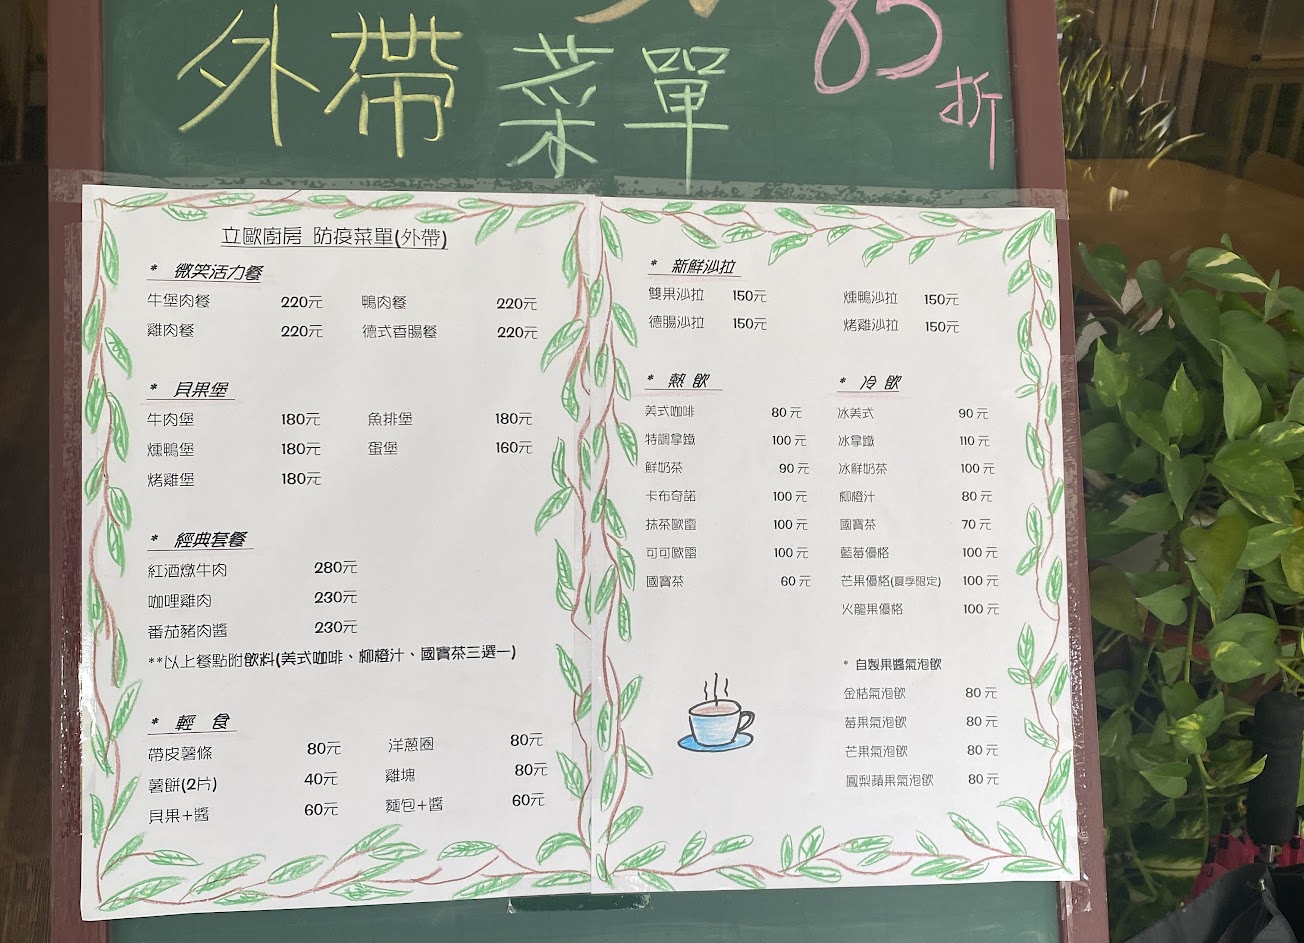 外帶菜單 85折
立歐廚房 防疫菜單(外帶)
* 微笑活力餐
牛堡肉餐 220元 鴨肉餐 220元
雞肉餐 220元 德式香腸餐 220元
* 貝果堡
牛肉堡 180元 魚排堡 180元
燻鴨堡 180元 蛋堡 160元
烤雞堡 180元
* 經典套餐
紅酒燉牛肉 280元
咖哩雞肉 230元
番茄豬肉醬 230元
**以上餐點附飲料(美式咖啡、柳橙汁、國寶茶三選一)
* 輕 食
帶皮薯條 80元 洋蔥圈 80元
薯餅(2片) 40元 雞塊 80元
貝果+醬 60元 麵包+醬 60元
* 新鮮沙拉
雙果沙拉 150元 燻鴨沙拉 150元
德腸沙拉 150元 烤雞沙拉 150元
* 熱 飲
美式咖啡 80 元
特調拿鐵 100 元
鮮奶茶 90 元
卡布奇諾 100 元
抹茶歐蕾 100 元
可可歐蕾 100 元
國寶茶 60 元
* 冷 飲
冰美式 90 元
冰拿鐵 110 元
冰鮮奶茶 100 元
柳橙汁 80 元
國寶茶 70 元
藍莓優格 100 元
芒果優格(夏季限定) 100 元
火龍果優格 100 元
* 自製果醬氣泡飲
金桔氣泡飲 80 元
莓果氣泡飲 80 元
芒果氣泡飲 80 元
鳳梨蘋果氣泡飲 80 元